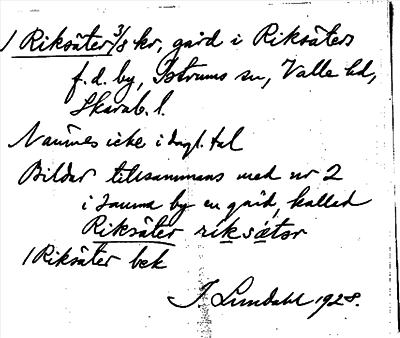 1 Riksäter 3/8 kr, gård i Riksäters
f.d. by, Istrums sn, Valle hd,
Skarab. l.
Namnes icke i dagl. tal
Bildar tillsammans med nr 2
i samma by en gård, kallad
Riksäter riksætər
1 Riksäter bek
J. Lundahl 1928.